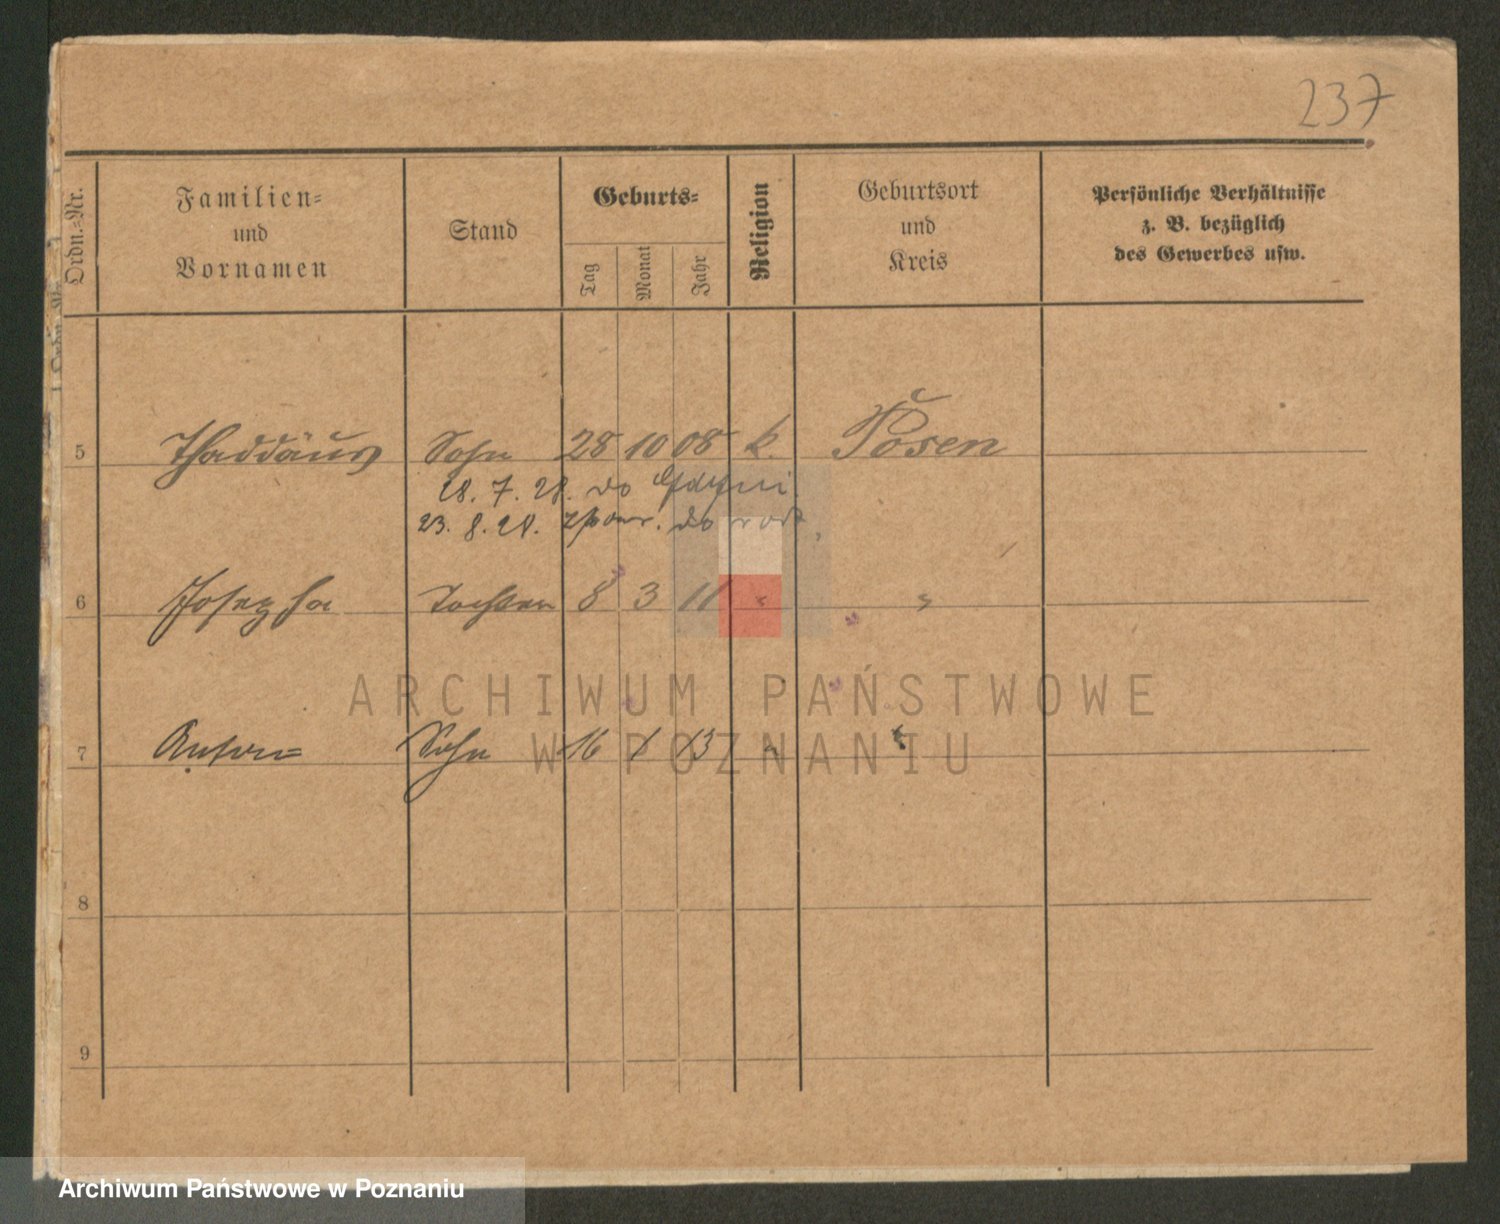 237
Ordn.-Nr. Familien- und Vornamen Stand Geburts- Tag Monat Jahr Religion Geburtsort und Kreis Persönliche Verhältnisse z. B. bezüglich des Gewerbes usw.
5 Thaddäus Sohn 28 10 08 k. Posen
28. 7. 28. do Gdyni.
23. 8. 28. z pow. do rodz.
6 Josepha Tochter 8 3 11 " "
7 Anton Sohn 16 1 13 " "
8
9
ARCHIWUM PAŃSTWOWE
W POZNANIU
Archiwum Państwowe w Poznaniu